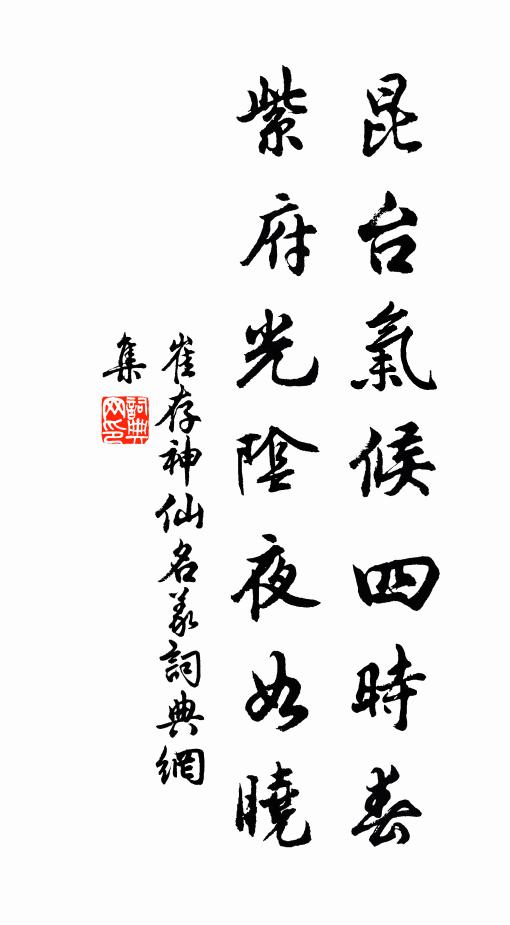 昆台氣候四時春
紫府光陰夜如曉
崔存神仙名義詞典網
集
詞典
网印